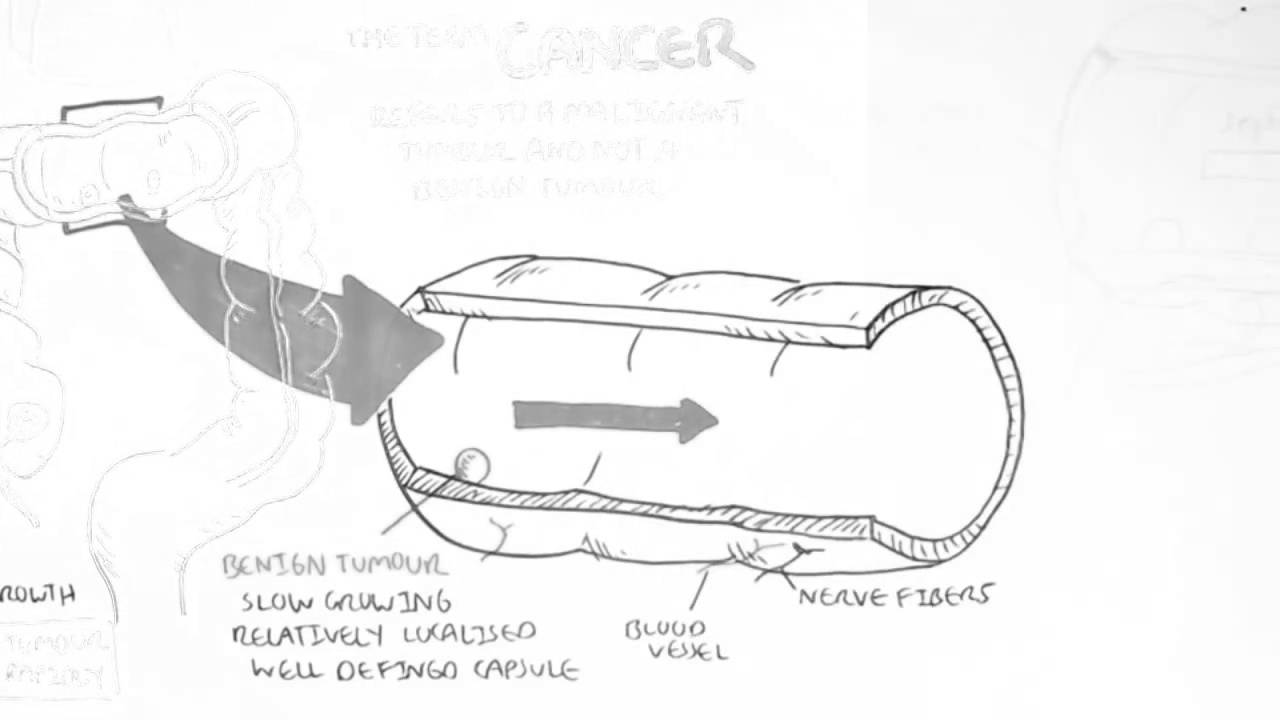 THE TERM CANCER
REFERS TO A MALIGNANT
TUMOUR AND NOT A
BENIGN TUMOUR
BENIGN TUMOUR
SLOW GROWING
RELATIVELY LOCALISED
WELL DEFINED CAPSULE
BLOOD
VESSEL
NERVE FIBERS
ROWTH
TUMOUR
RAPIDLY